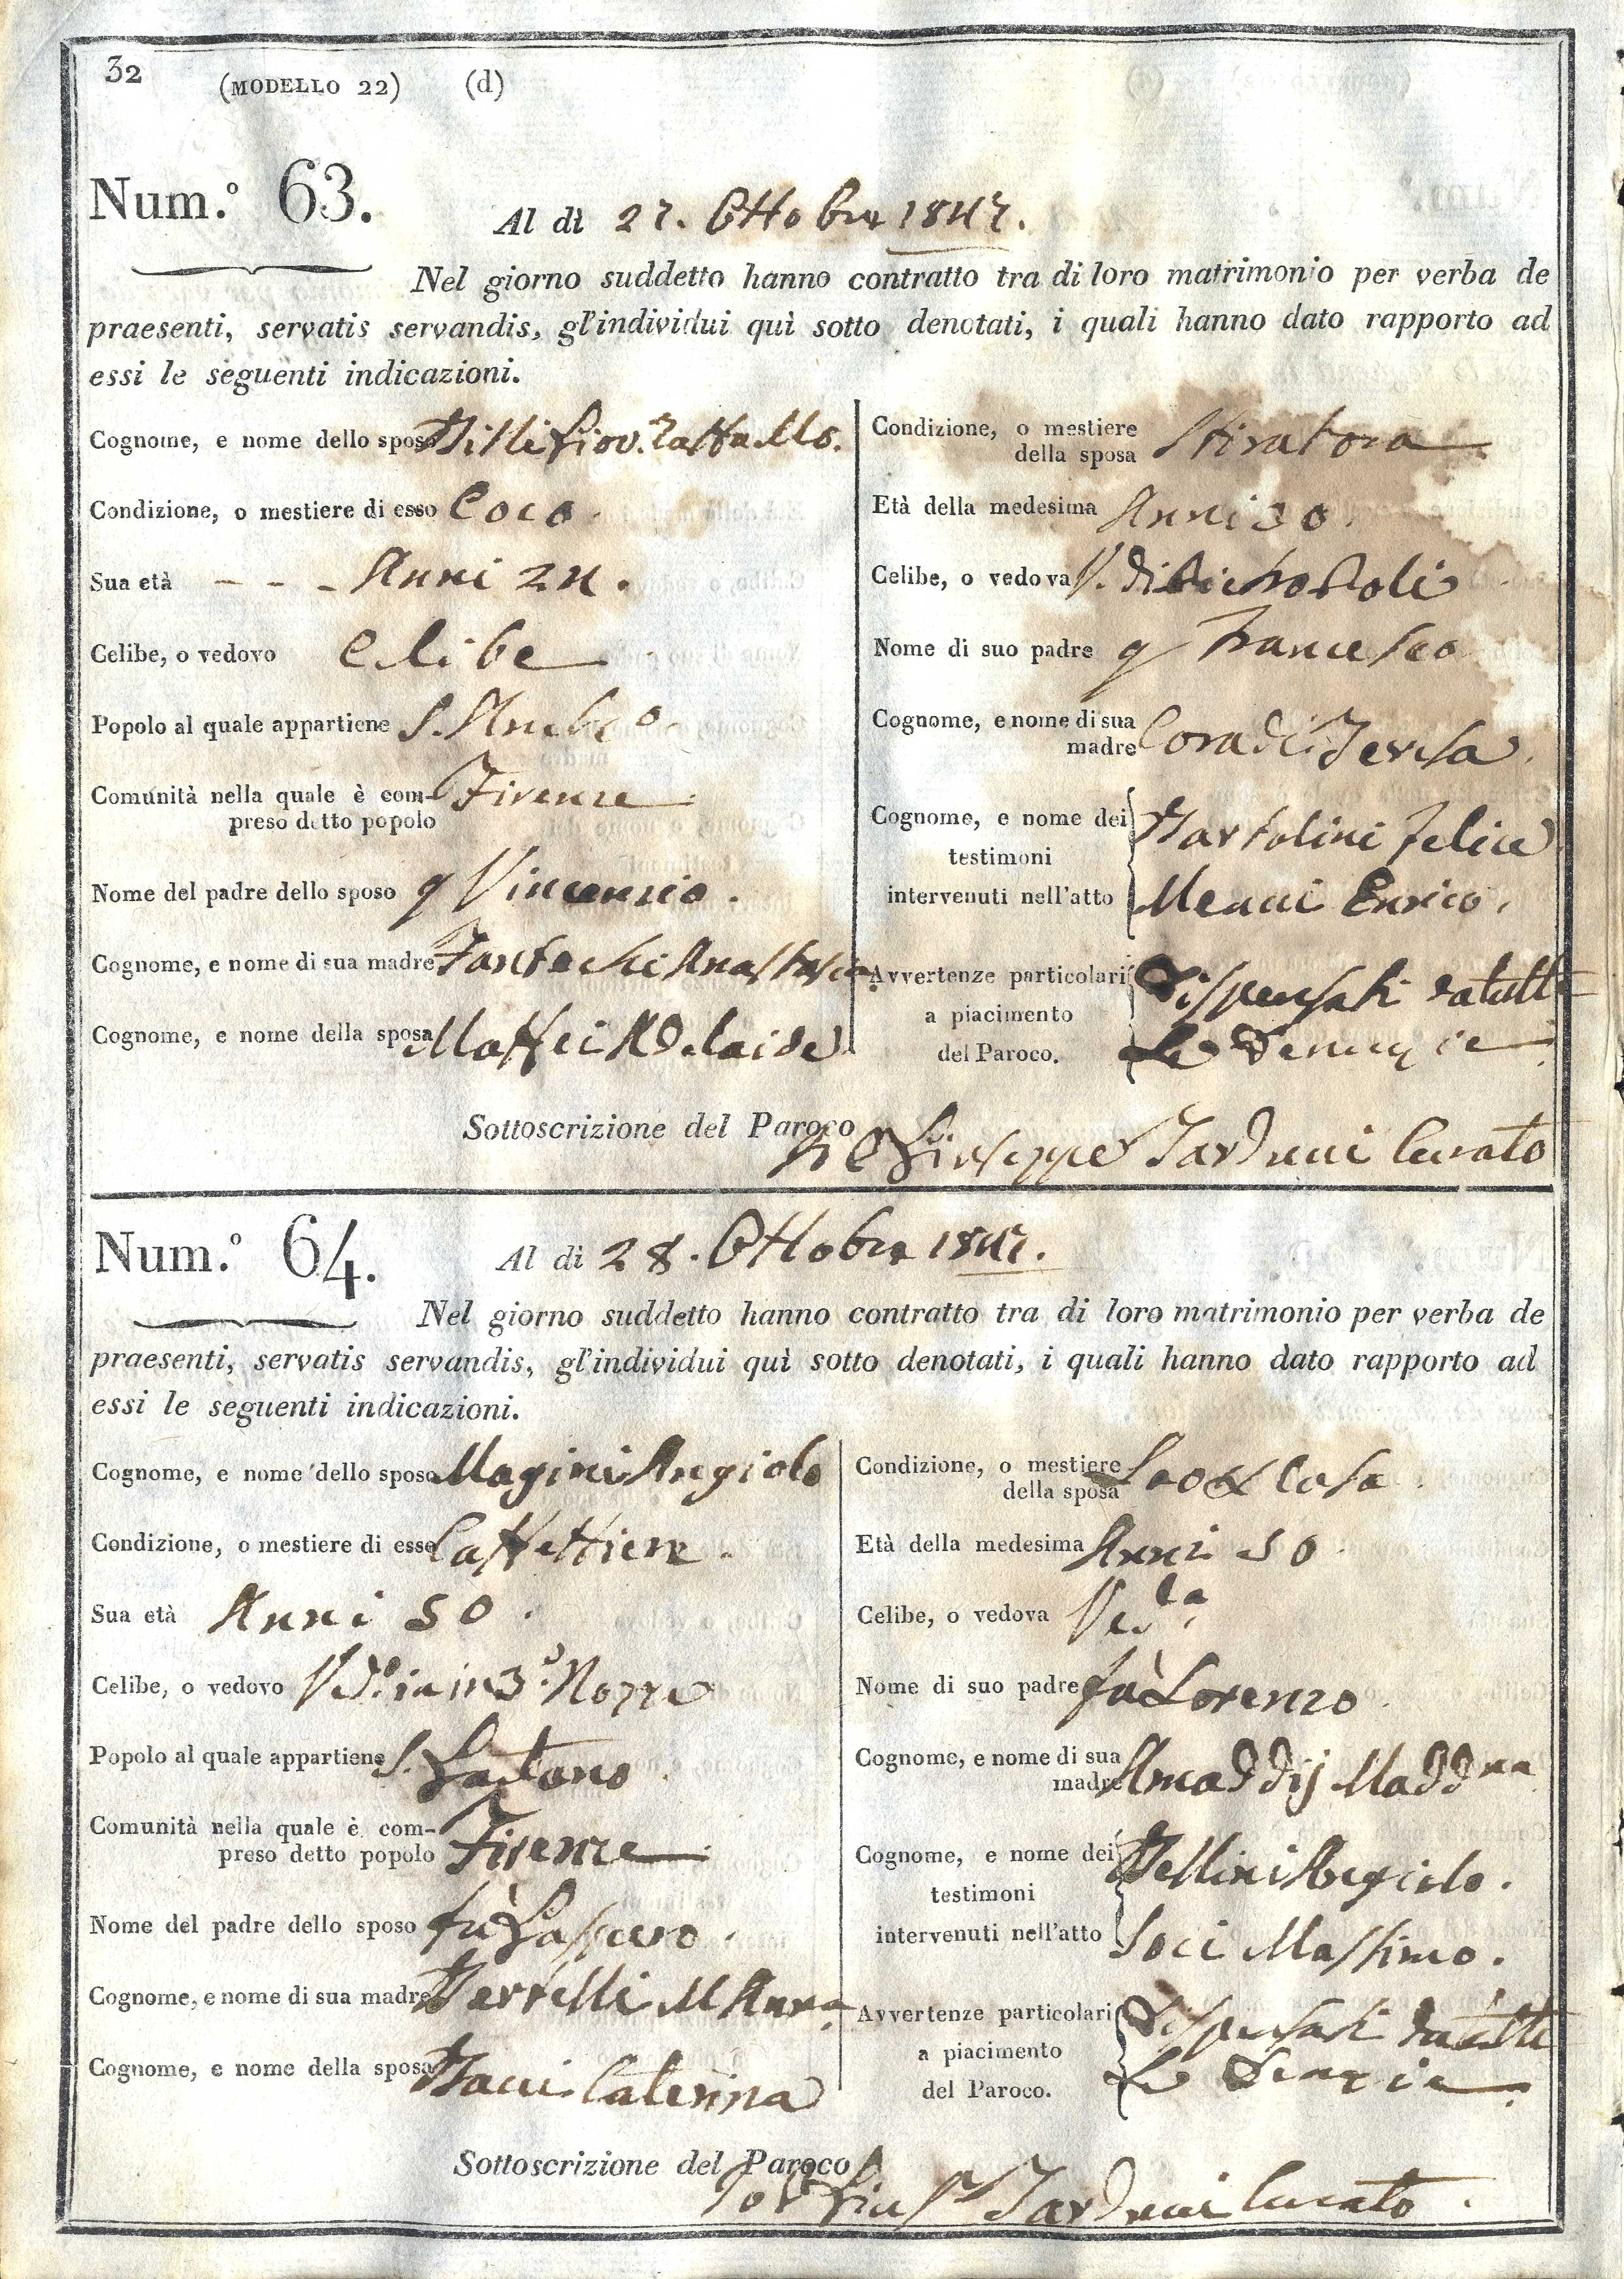 32 (MODELLO 22) (d)
Num.º 63.
Al dì 27. Ottobre 1847.
Nel giorno suddetto hanno contratto tra di loro matrimonio per verba de
praesenti, servatis servandis, gl'individui quì sotto denotati, i quali hanno dato rapporto ad
essi le seguenti indicazioni.
Cognome, e nome dello sposo Billi Giov. Batta
Condizione, o mestiere di esso Coco.
Sua età - - - Anni 24.
Celibe, o vedovo Celibe
Popolo al quale appartiene S.
Comunità nella quale è com-
preso detto popolo Firenze
Nome del padre dello sposo q Vincenzio.
Cognome, e nome di sua madre Fantechi Anastasia
Cognome, e nome della sposa Maffei Adelaide
Condizione, o mestiere
della sposa Stiratora
Età della medesima Anni 30.
Celibe, o vedova V. di
Nome di suo padre q Francesco
Cognome, e nome di sua
madre Coradi Teresa.
Cognome, e nome dei
testimoni
intervenuti nell'atto
Bartolini Felice
Menni Enrico.
Avvertenze particolari
a piacimento
del Paroco.
Dispensati da tutte
Le Denunzie
Sottoscrizione del Paroco
Giuseppe Tarducci Curato
Num.º 64.
Al dì 28. Ottobre 1847.
Nel giorno suddetto hanno contratto tra di loro matrimonio per verba de
praesenti, servatis servandis, gl'individui quì sotto denotati, i quali hanno dato rapporto ad
essi le seguenti indicazioni.
Cognome, e nome dello sposo Magini Angiolo
Condizione, o mestiere di esso Caffettiere.
Sua età Anni 50.
Celibe, o vedovo Vdo. in 3e. Nozze
Popolo al quale appartiene S. Gaetano
Comunità nella quale è com-
preso detto popolo Firenze
Nome del padre dello sposo fù Gaspero.
Cognome, e nome di sua madre Bertelli M Anna
Cognome, e nome della sposa Bacci Caterina
Condizione, o mestiere
della sposa Casa.
Età della medesima Anni 50.
Celibe, o vedova Veda.
Nome di suo padre fù Lorenzo.
Cognome, e nome di sua
madre Amaddij Maddna
Cognome, e nome dei
testimoni
intervenuti nell'atto
Bellini Angiolo.
Soci Massimo.
Avvertenze particolari
a piacimento
del Paroco.
Dispensati da tutte
Le
Sottoscrizione del Paroco
Gius. Tarducci Curato.